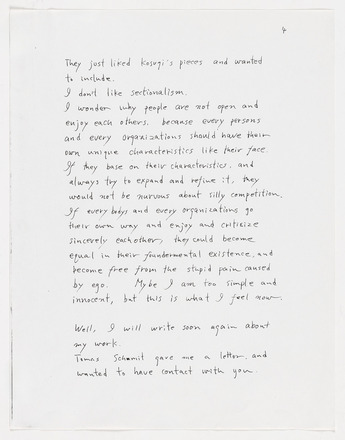 4
They just liked Kosugi's pieces and wanted
to include.
I don't like sectionalism.
I wonder why people are not open and
enjoy each others, because every persons
and every organizations should have their
own unique characteristics like their face.
If they base on their characteristics, and
always try to expand and refine it, they
would not be nurvous about silly competition.
If every bodys and every organizations go
their own way and enjoy and criticize
sincerely each other, they could become
equal in their foundermental existence, and
become free from the stupid pain caused
by ego. Mybe I am too simple and
innocent, but this is what I feel now.
Well, I will write soon again about
my work.
Tomas Schmit gave me a letter, and
wanted to have contact with you.